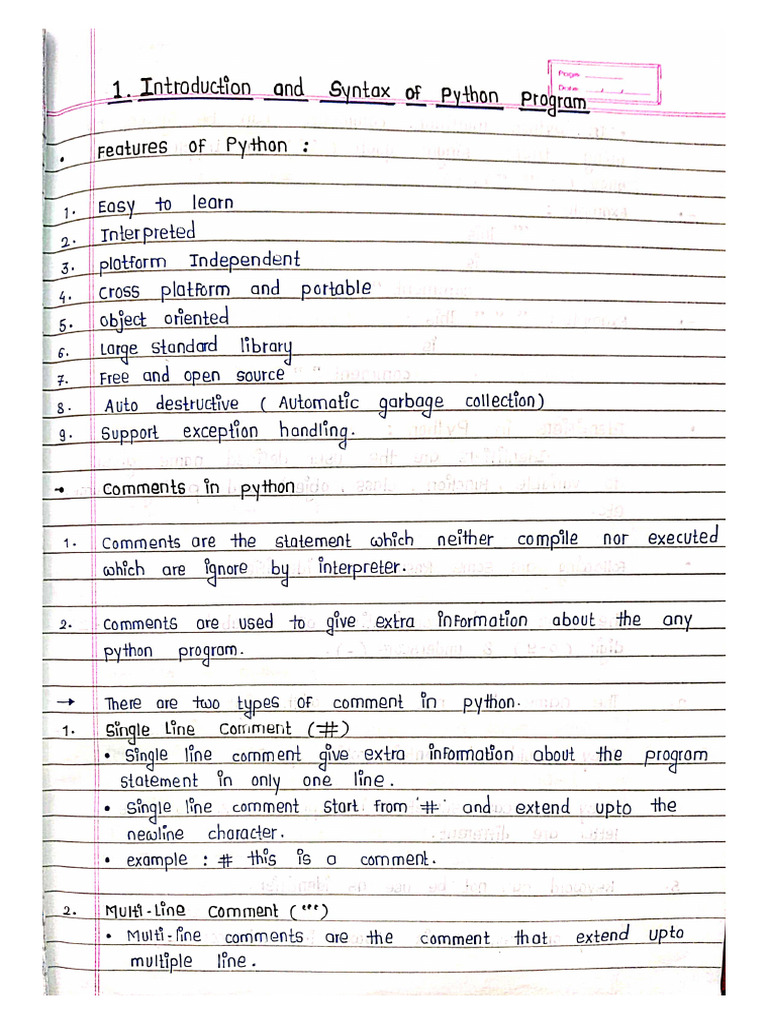 Page
Date
1. Introduction and Syntax of Python Program
• Features of Python :
1. Easy to learn
2. Interpreted
3. platform Independent
4. cross platform and portable
5. object oriented
6. Large standard library
7. Free and open source
8. Auto destructive ( Automatic garbage collection)
9. Support exception handling.
• comments in python
1. Comments are the statement which neither compile nor executed
which are ignore by interpreter.
2. Comments are used to give extra information about the any
python program.
→ There are two types of comment in python.
1. Single Line Comment (#)
• Single line comment give extra information about the program
statement in only one line.
• Single line comment start from '#' and extend upto the
newline character.
• example : # this is a comment.
2. Multi-Line Comment (""")
• Multi-line comments are the comment that extend upto
multiple line.